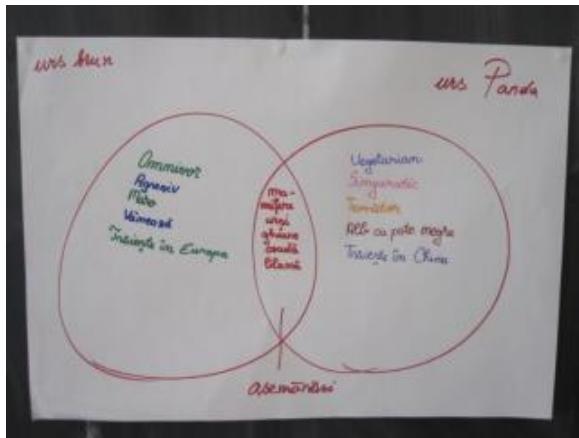 urs brun
urs Panda
Omnivor
Agresiv
Maro
Vânează
Trăiește în Europa
ma-
mifere
urși
ghiare
coadă
blană
Vegetarian
Singuratic
Temător
Alb cu pete negre
Trăiește în China
asemănări